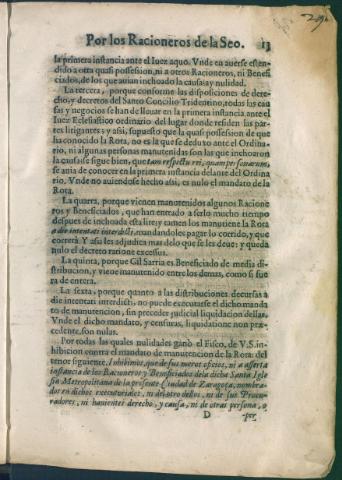 Por los Racioneros de la Seo. 13
la primera instancia ante el Iuez aquo. Vnde en auerse esten-
dido a otra quasi possession, ni a otros Racioneros, ni Benefi
ciados, de los que auian inchoado la causa; ay nulidad.
La tercera, porque conforme las disposiciones de dere-
cho, y decretos del Santo Concilio Tridentino, todas las cau
sas y negocios se han de lleuar en la primera instancia ante el
Iuez Eclesiastico ordinario del lugar donde residen las par-
tes litigantes: y assi, supuesto que la quasi possession de que
ha conocido la Rota, no es la que se deduxo ante el Ordina-
rio, ni algunas personas manutenidas son las que inchoaron
la causa: se sigue bien, que tam respectu rei, quam personarum,
se auia de conocer en la primera instancia delante del Ordina
rio. Vnde no auiendose hecho assi, es nulo el mandato de la
Rota.
La quarta, porque vienen manutenidos algunos Racione
ros y Beneficiados, que han entrado a serlo mucho tiempo
despues de inchoada esta lite: y tamen los mantiene la Rota
a die intentati interdicti, mandandoles pagar lo corrido, y que
correrà. Y assi les adjudica mas delo que se les deue: y queda
nulo el decreto ratione excessus.
La quinta, porque Gil Sarria es Beneficiado de media di-
stribucion, y viene manutenido entre los demas, como si fue
ra de entera.
La sexta, porque quanto a las distribuciones decursas a
die intentati interdicti, no puede executarse el dicho manda
to de manutencion, sin preceder judicial liquidacion dellas.
Vnde el dicho mandato, y censuras, liquidatione non præ-
cedente, son nulas.
Por todas las quales nulidades ganò el Fisco, de V.S. in-
hibicion contra el mandato de manutencion de la Rota: del
tenor siguiente. Inhibimos, que de sus meros oficios, ni a asserta
instancia de los Racioneros y Beneficiados dela dicha Santa Igle
sia Metropolitana de la presente Ciudad de Zaragoça, nombra-
dos en dichos executoriales, ni del otro dellos, ni de sus Procu-
radores, ni hauientes derecho, y causa, ni de otras persona, o
D per-